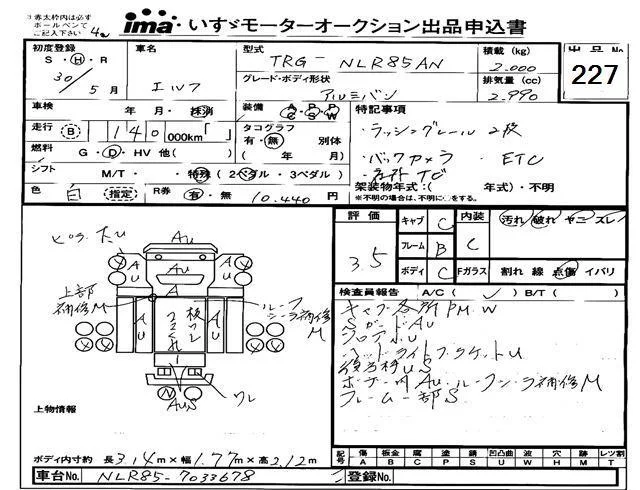 ※赤太枠内は必ず
ボールペンで
ご記入下さい
ima いすゞモーターオークション出品申込書
初度登録
S・H・R
30/5月
車名
エルフ
型式
TRG- NLR85AN
積載 (kg)
2.000
出品No.
227
グレード・ボディ形状
アルミバン
排気量 (cc)
2.990
車検 年 月・抹消
装備 A C P S P W
特記事項
走行 B 140 000km「 」
タコグラフ
有・無 別体
( 年 月)
・ラッシングレール 2段
燃料 G・D・HV 他( )
・バックカメラ ・ETC
シフト M/T・ 特殊 (2ペダル・3ペダル)
架装物年式:( 年式)・不明
※不明の場合は、不明に○をする。
色 白 (指定) R券 有・無 10.440 円
評価 3.5
キャブ C
内装 C
汚れ 破れ ヤニ ズレ
フレーム B
ボディ C
Fガラス 割れ 線 点傷 イバリ
検査員報告 A/C( ✓ )B/T( )
キャブ各所PM.W
SガードAu
フロアU
ヘッドライトブラケットU
後方枠US
ボデー内Au.ルーフシーラ補修M
フレーム一部S
Au
上部
補修M
ルーフ
シーラ補修
M
A
AU
AU
ワレ
AuS
上物情報
ボディ内寸約 長3.14m×幅1.77m×高2.12m
記号 傷 A 板金 B 腐 C 塗 P 錆 S 凹凸曲 U 波 W 穴 H 跡 M レツ割 T
車台No. NLR85-7033678
登録No.